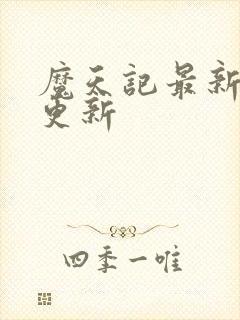 魔天记最新
更新
四季一唯